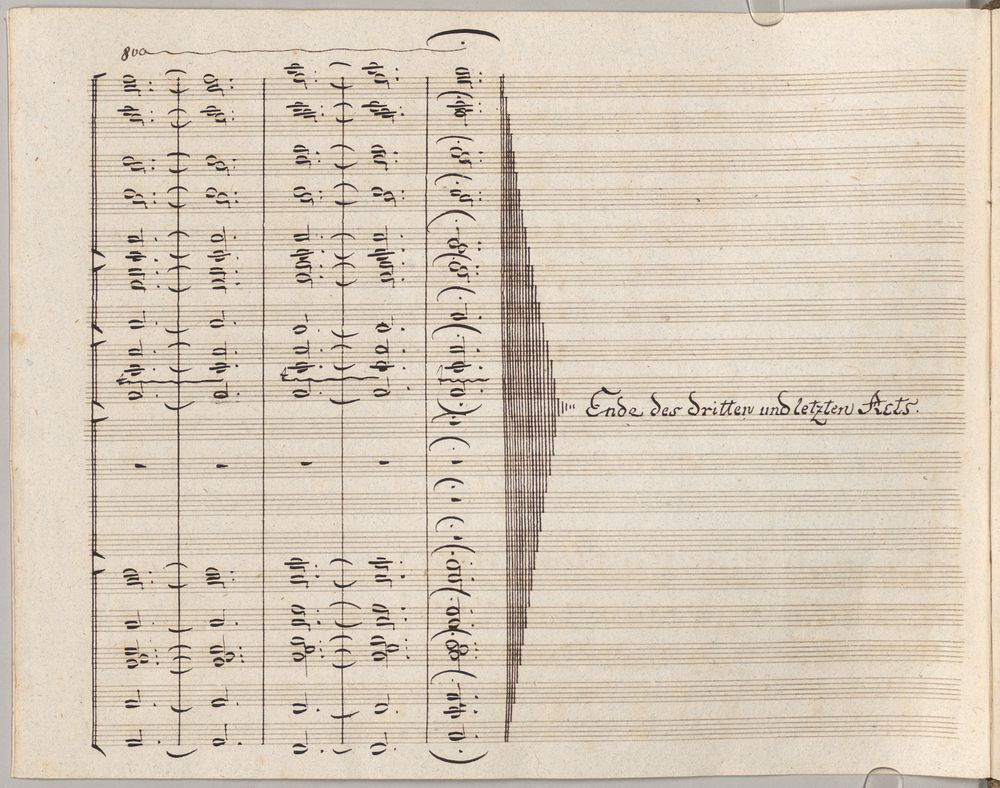 8va
Ende des dritten und letzten Acts.